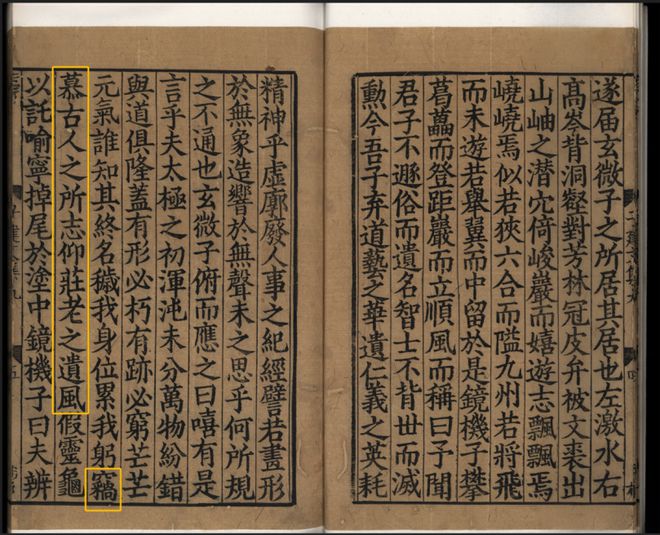 遂届玄微子之所居其居也左激水右
高岑背洞壑對芳林冠皮弁被文裘出
山岫之潜穴倚峻巖而嬉遊志飄飄焉
嶢嶢焉似若狹六合而隘九州若將飛
而未遊若舉翼而中留於是鏡機子攀
葛藟而登距巖而立順風而稱曰予聞
君子不遯俗而遺名智士不背世而滅
勲今吾子弃道藝之華遺仁義之英耗
精神乎虛廓廢人事之紀經譬若畫形
於無象造響於無聲未之思乎何所規
之不通也玄微子俯而應之曰嘻有是
言乎夫太極之初渾沌未分萬物紛錯
與道俱隆蓋有形必朽有跡必窮芒芒
元氣誰知其終名穢我身位累我躬竊
慕古人之所志仰莊老之遺風假靈龜
以託喻寧掉尾於塗中鏡機子曰夫辨